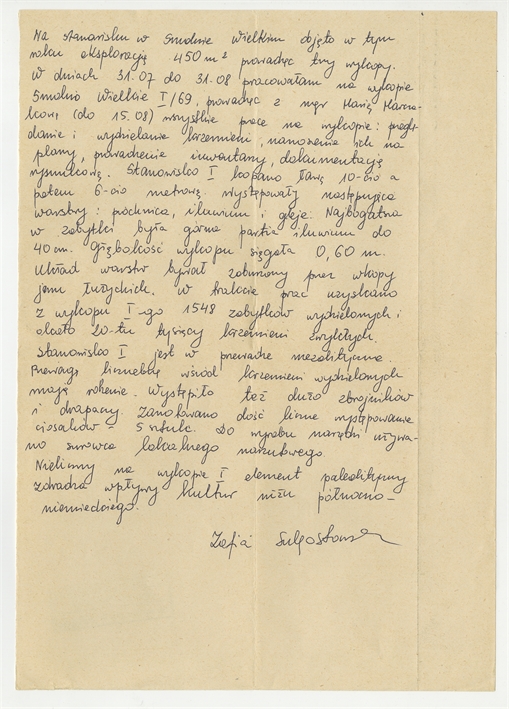 Na stanowisku w Smolnie Wielkim objęto w tym
roku eksploracją 450 m² prowadząc trzy wykopy.
W dniach 31.07 do 31.08 pracowałam na wykopie
Smolno Wielkie I/69, prowadząc z mgr Marią
(do 15.08) wszystkie prace na wykopie: przeglą-
danie i wydzielanie krzemieni, nanoszenie ich na
plany, prowadzenie inwentarzy, dokumentację
rysunkową. Stanowisko I kopano ławą 10-cio a
potem 6-cio metrową. Występowały następujące
warstwy: próchnica, iluwium i gleje. Najbogatsza
w zabytki była górna partia iluwium do
40 cm. Głębokość wykopu sięgała 0,60 m.
Układ warstw bywał zaburzony przez wkopy
jam łużyckich. W trakcie prac uzyskano
z wykopu I-go 1548 zabytków wydzielonych i
około 20-tu tysięcy krzemieni zwykłych.
Stanowisko I jest w przewadze mezolityczne.
Przewagę liczebną wśród krzemieni wydzielonych
mają rdzenie. Wystąpiło też dużo zbrojników
i drapaczy. Zanotowano dość liczne występowanie
ciosaków 5 sztuk. Do wyrobu narzędzi używa-
no surowca lokalnego narzutowego.
Nieliczny na wykopie I element paleolityczny
zdradza wpływy kultur niżu północno-
niemieckiego.
Zofia